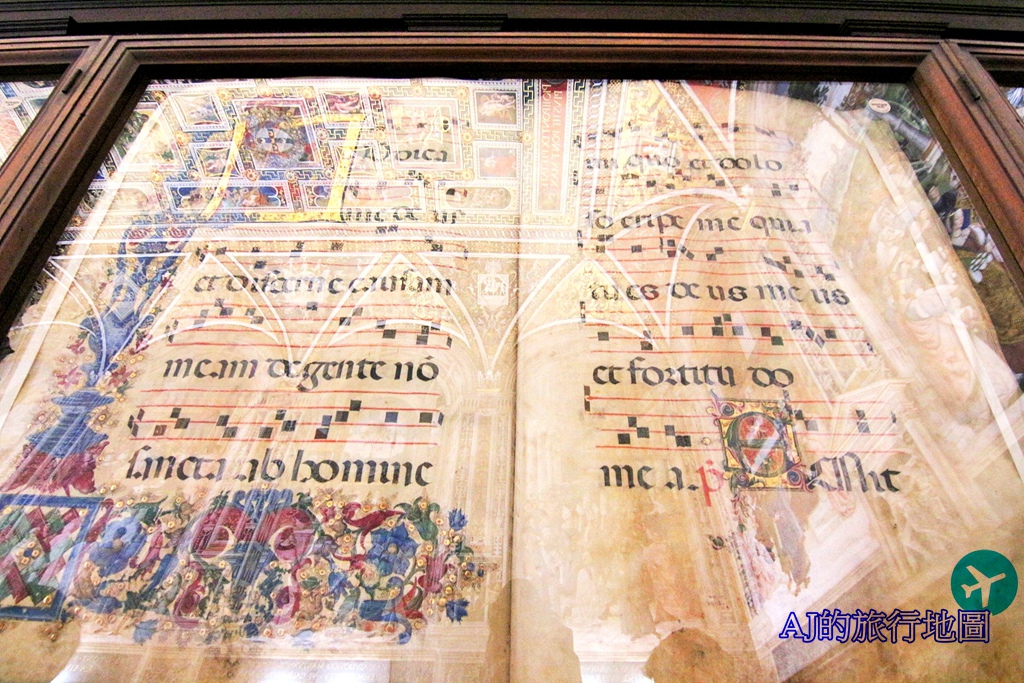 udica
me de us
et discerne causam
meam de gente nō
sancta ab homine
ini quo et dolo
so eripe me quia
tu es de us me us
et fortitu do
me a. p̄s
AJ的旅行地圖